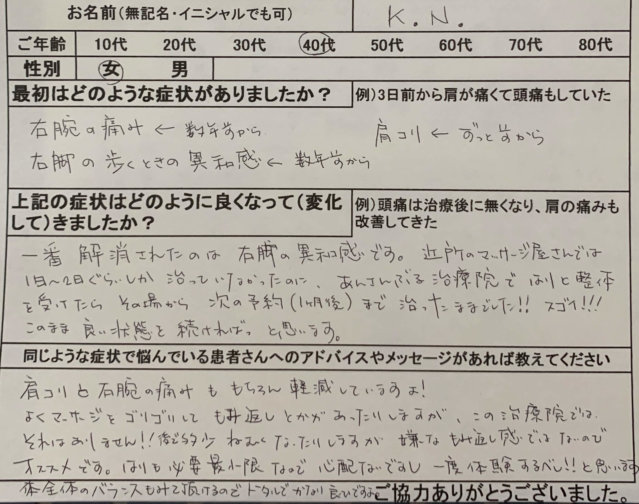 お名前(無記名・イニシャルでも可) K.N.
ご年齢 10代 20代 30代 40代 50代 60代 70代 80代
性別 女 男
最初はどのような症状がありましたか? 例)3日前から肩が痛くて頭痛もしていた
右腕の痛み ← 数年前から 肩コリ ← ずっと前から
右脚の歩くときの異和感 ← 数年前から
上記の症状はどのように良くなって(変化 例)頭痛は治療後に無くなり、肩の痛みも
して)きましたか? 改善してきた
一番解消されたのは右脚の異和感です。近所のマッサージ屋さんでは
1日〜2日ぐらいしか治っていなかったのに、あんさんぶる治療院ではりと整体
を受けたらその場から次の予約(1ヶ月後)まで治ったままでした!!スゴイ!!!
このまま良い状態を続ければっと思います。
同じような症状で悩んでいる患者さんへのアドバイスやメッセージがあれば教えてください
肩コリと右腕の痛みももちろん軽減していますよ!
よくマッサージをゴリゴリしてもみ返しとかがあったりしますが、この治療院では
それはありません!!後で多少ねむくなったりしますが嫌なもみ返し感ではないので
オススメです。はりも必要最小限なので心配ないですし一度体験するべし!!と思います
体全体のバランスもみて頂けるのでトータルでかなり良いですよ ご協力ありがとうございました。